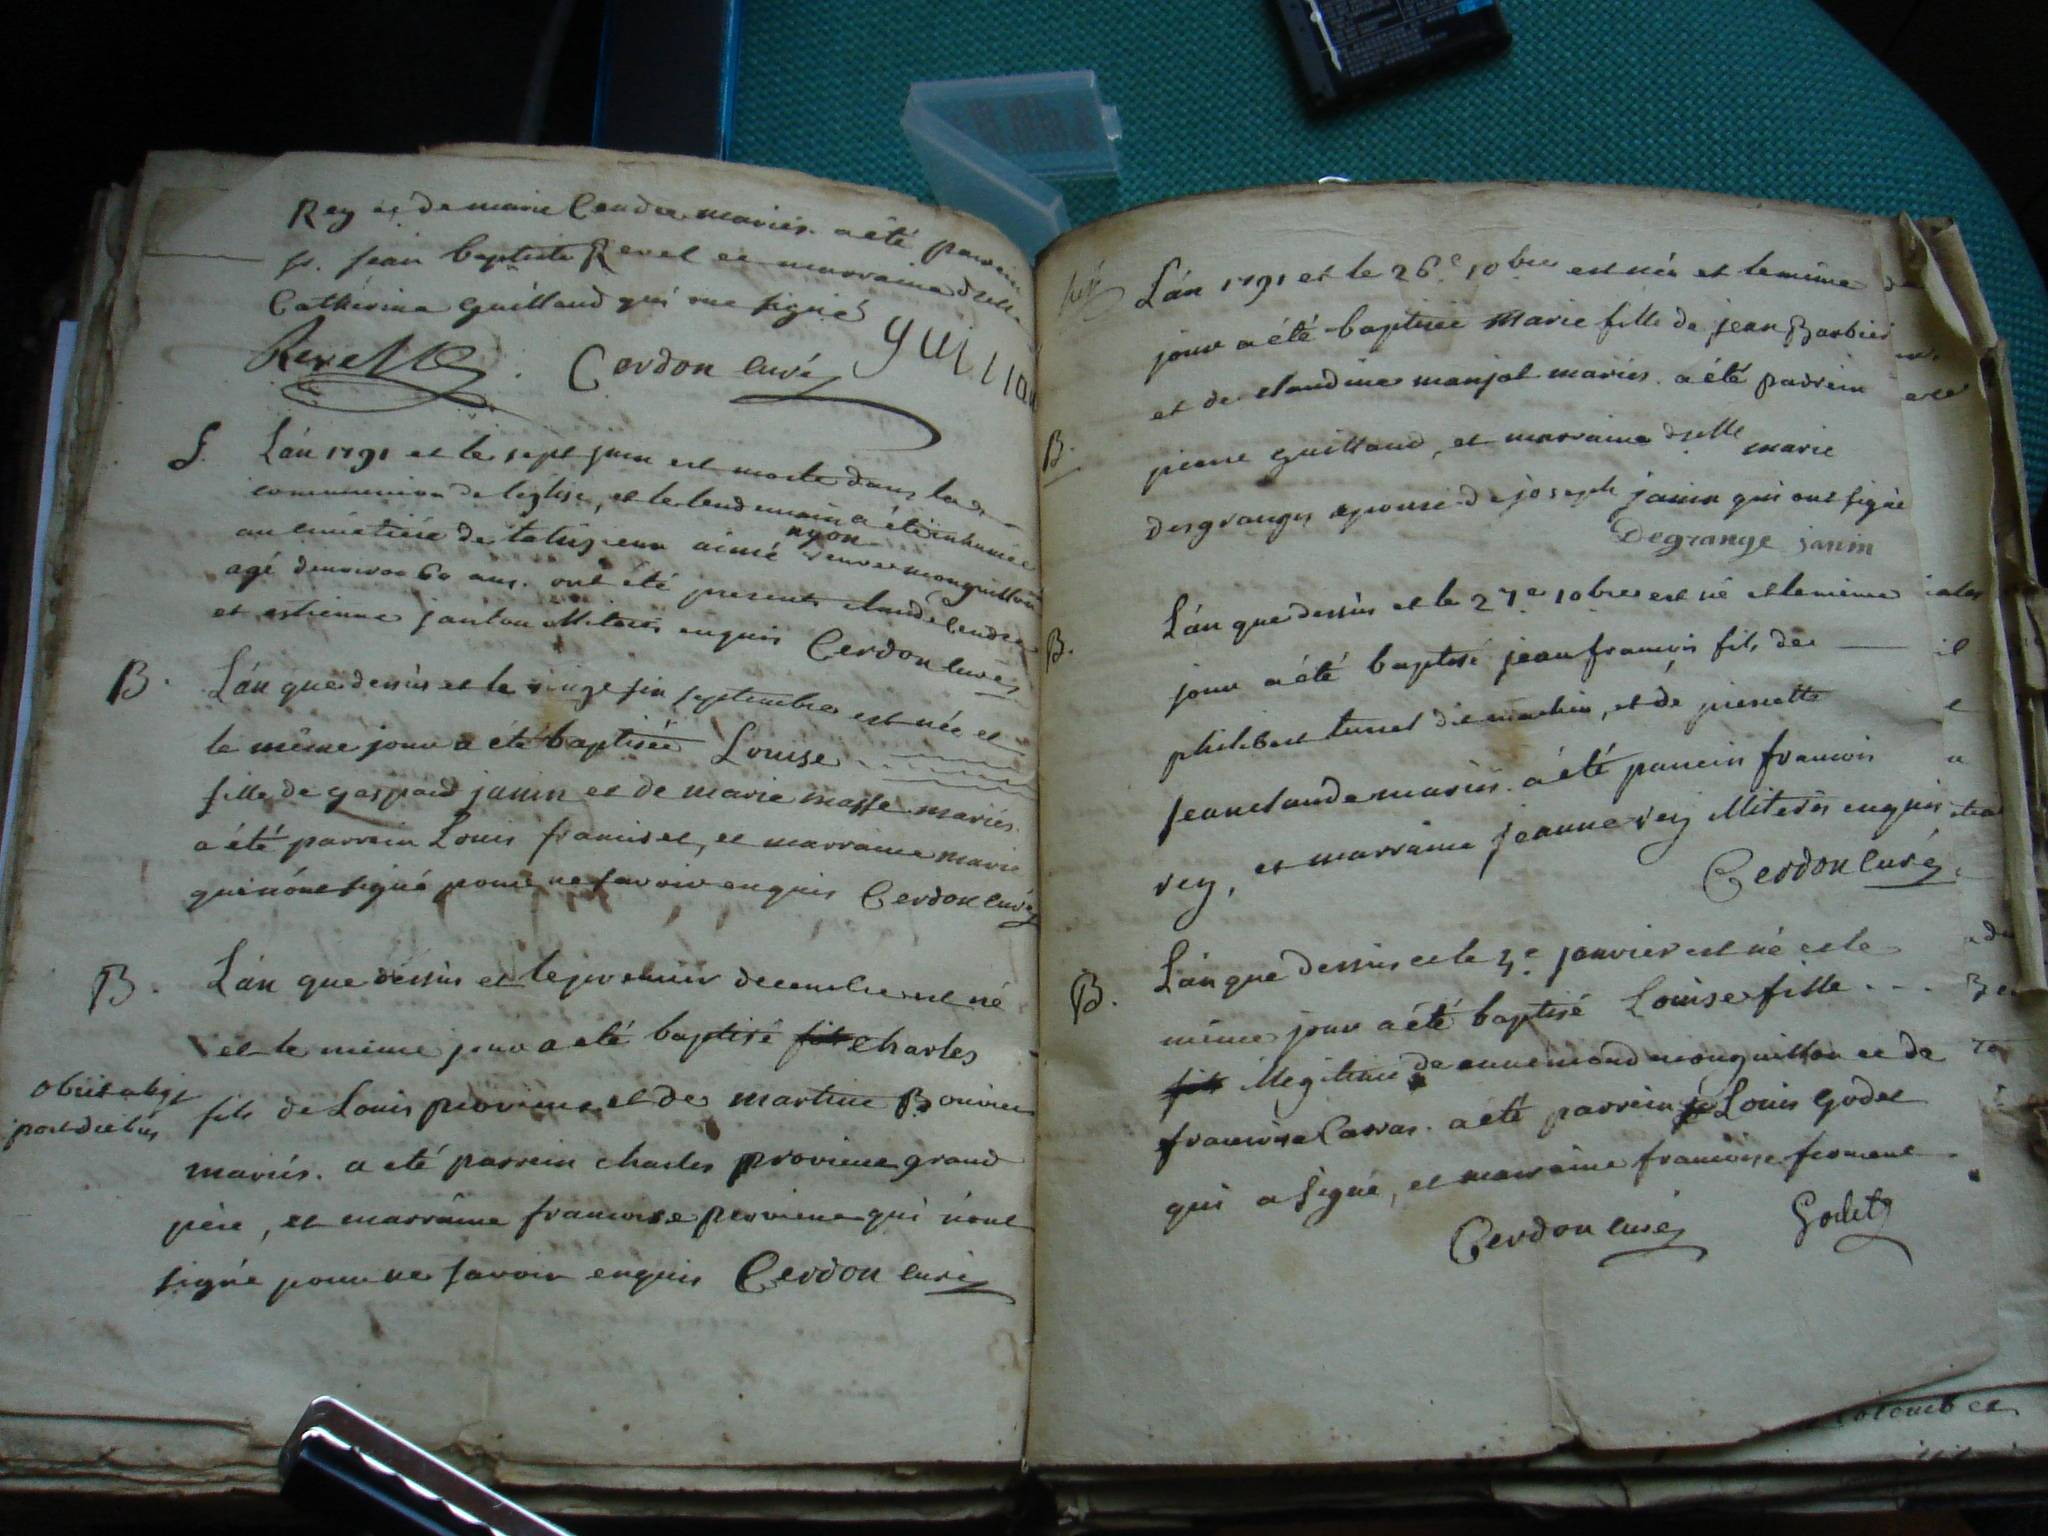 Rey et de marie Cendre mariés. a été parrein
sr. jean baptiste Revel et marraine dslle
Catherine Guillaud qui ont signé
Revel Cerdon curé guillau
S. L'an 1791 et le sept juin est morte dans la
communion de l'eglise, et le lendemain a été inhumée
au cimetiére de
nyon
agé denviron 60 ans. ont été presents claude Cendre
et estienne janton illiterés enquis Cerdon curé
B. L'an que dessus et le vingt six septembre est née et
le même jour a été baptisée Louise
fille de gaspard janin et de marie masse mariés.
a été parrein Louis francis et, et marraine marie
qui n'ont signé pour ne savoir enquis Cerdon curé
B. L'an que dessus et le premier decembre est né
et le même jour a été baptisé fils Charles
obiit
post dies
fils de Louis provienne et de martine Bouvier
mariés. a été parrein charles provienne grand
père, et marraine francoise provienne qui n'ont
signé pour ne savoir enquis Cerdon curé
L'an 1791 et le 26e 10bre est née et le même
jour a été baptisée Marie fille de jean Barbier
et de claudine manjot mariés. a été parrein
B. pierre guillaud, et marraine dslle marie
desgranges epouse de joseph janin qui ont signé
Degrange janin
L'an que dessus et le 27e 10bre est né et le même
B. jour a été baptisé jean francois fils de
philibert turrel dit machin, et de pierrette
jeanclaude mariés. a été parrein francois
rey, et marraine jeanne rey illiterés enquis
Cerdon curé
L'an que dessus et le 3e janvier est né et le
B. même jour a été baptisé Louise fille
fils illegitime de annemond monguillon et de
francoise Carras. a été parrein Louis Godet
qui a signé, et marraine francoise ferment
Cerdon curé Godet